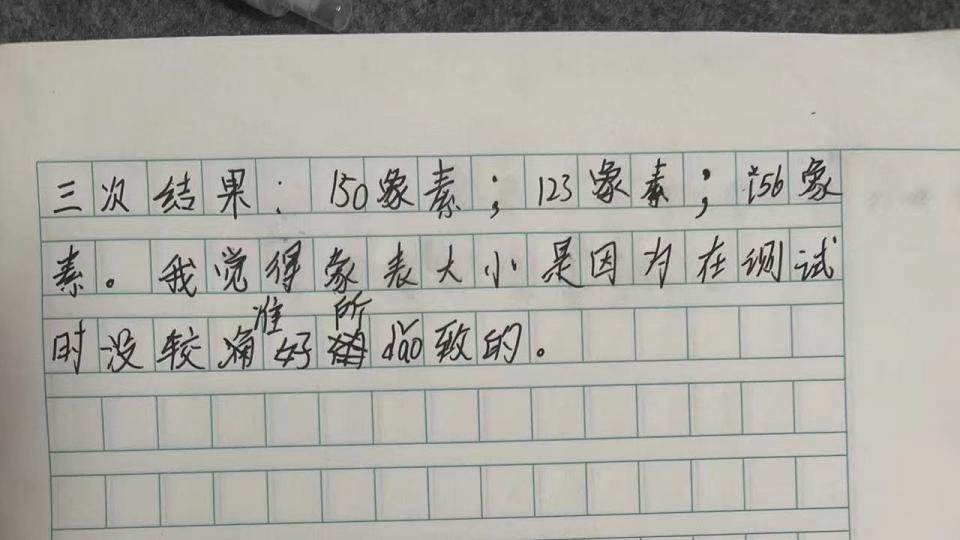 三次结果：150象素；123象素；156象
素。我觉得象表大小是因为在测试
时没较准好所dǎo致的。